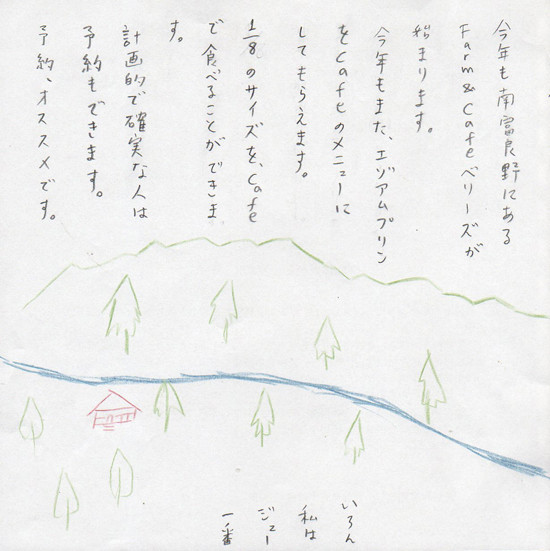 今年も南富良野にある
Farm&Cafeベリーズが
始まります。
今年もまた、エゾアムプリン
をCafeのメニューに
してもらえます。
1/8のサイズを、Cafe
で食べることができま
す。
計画的で確実な人は
予約もできます。
予約、オススメです。
いろん
私は
ジュー
一番